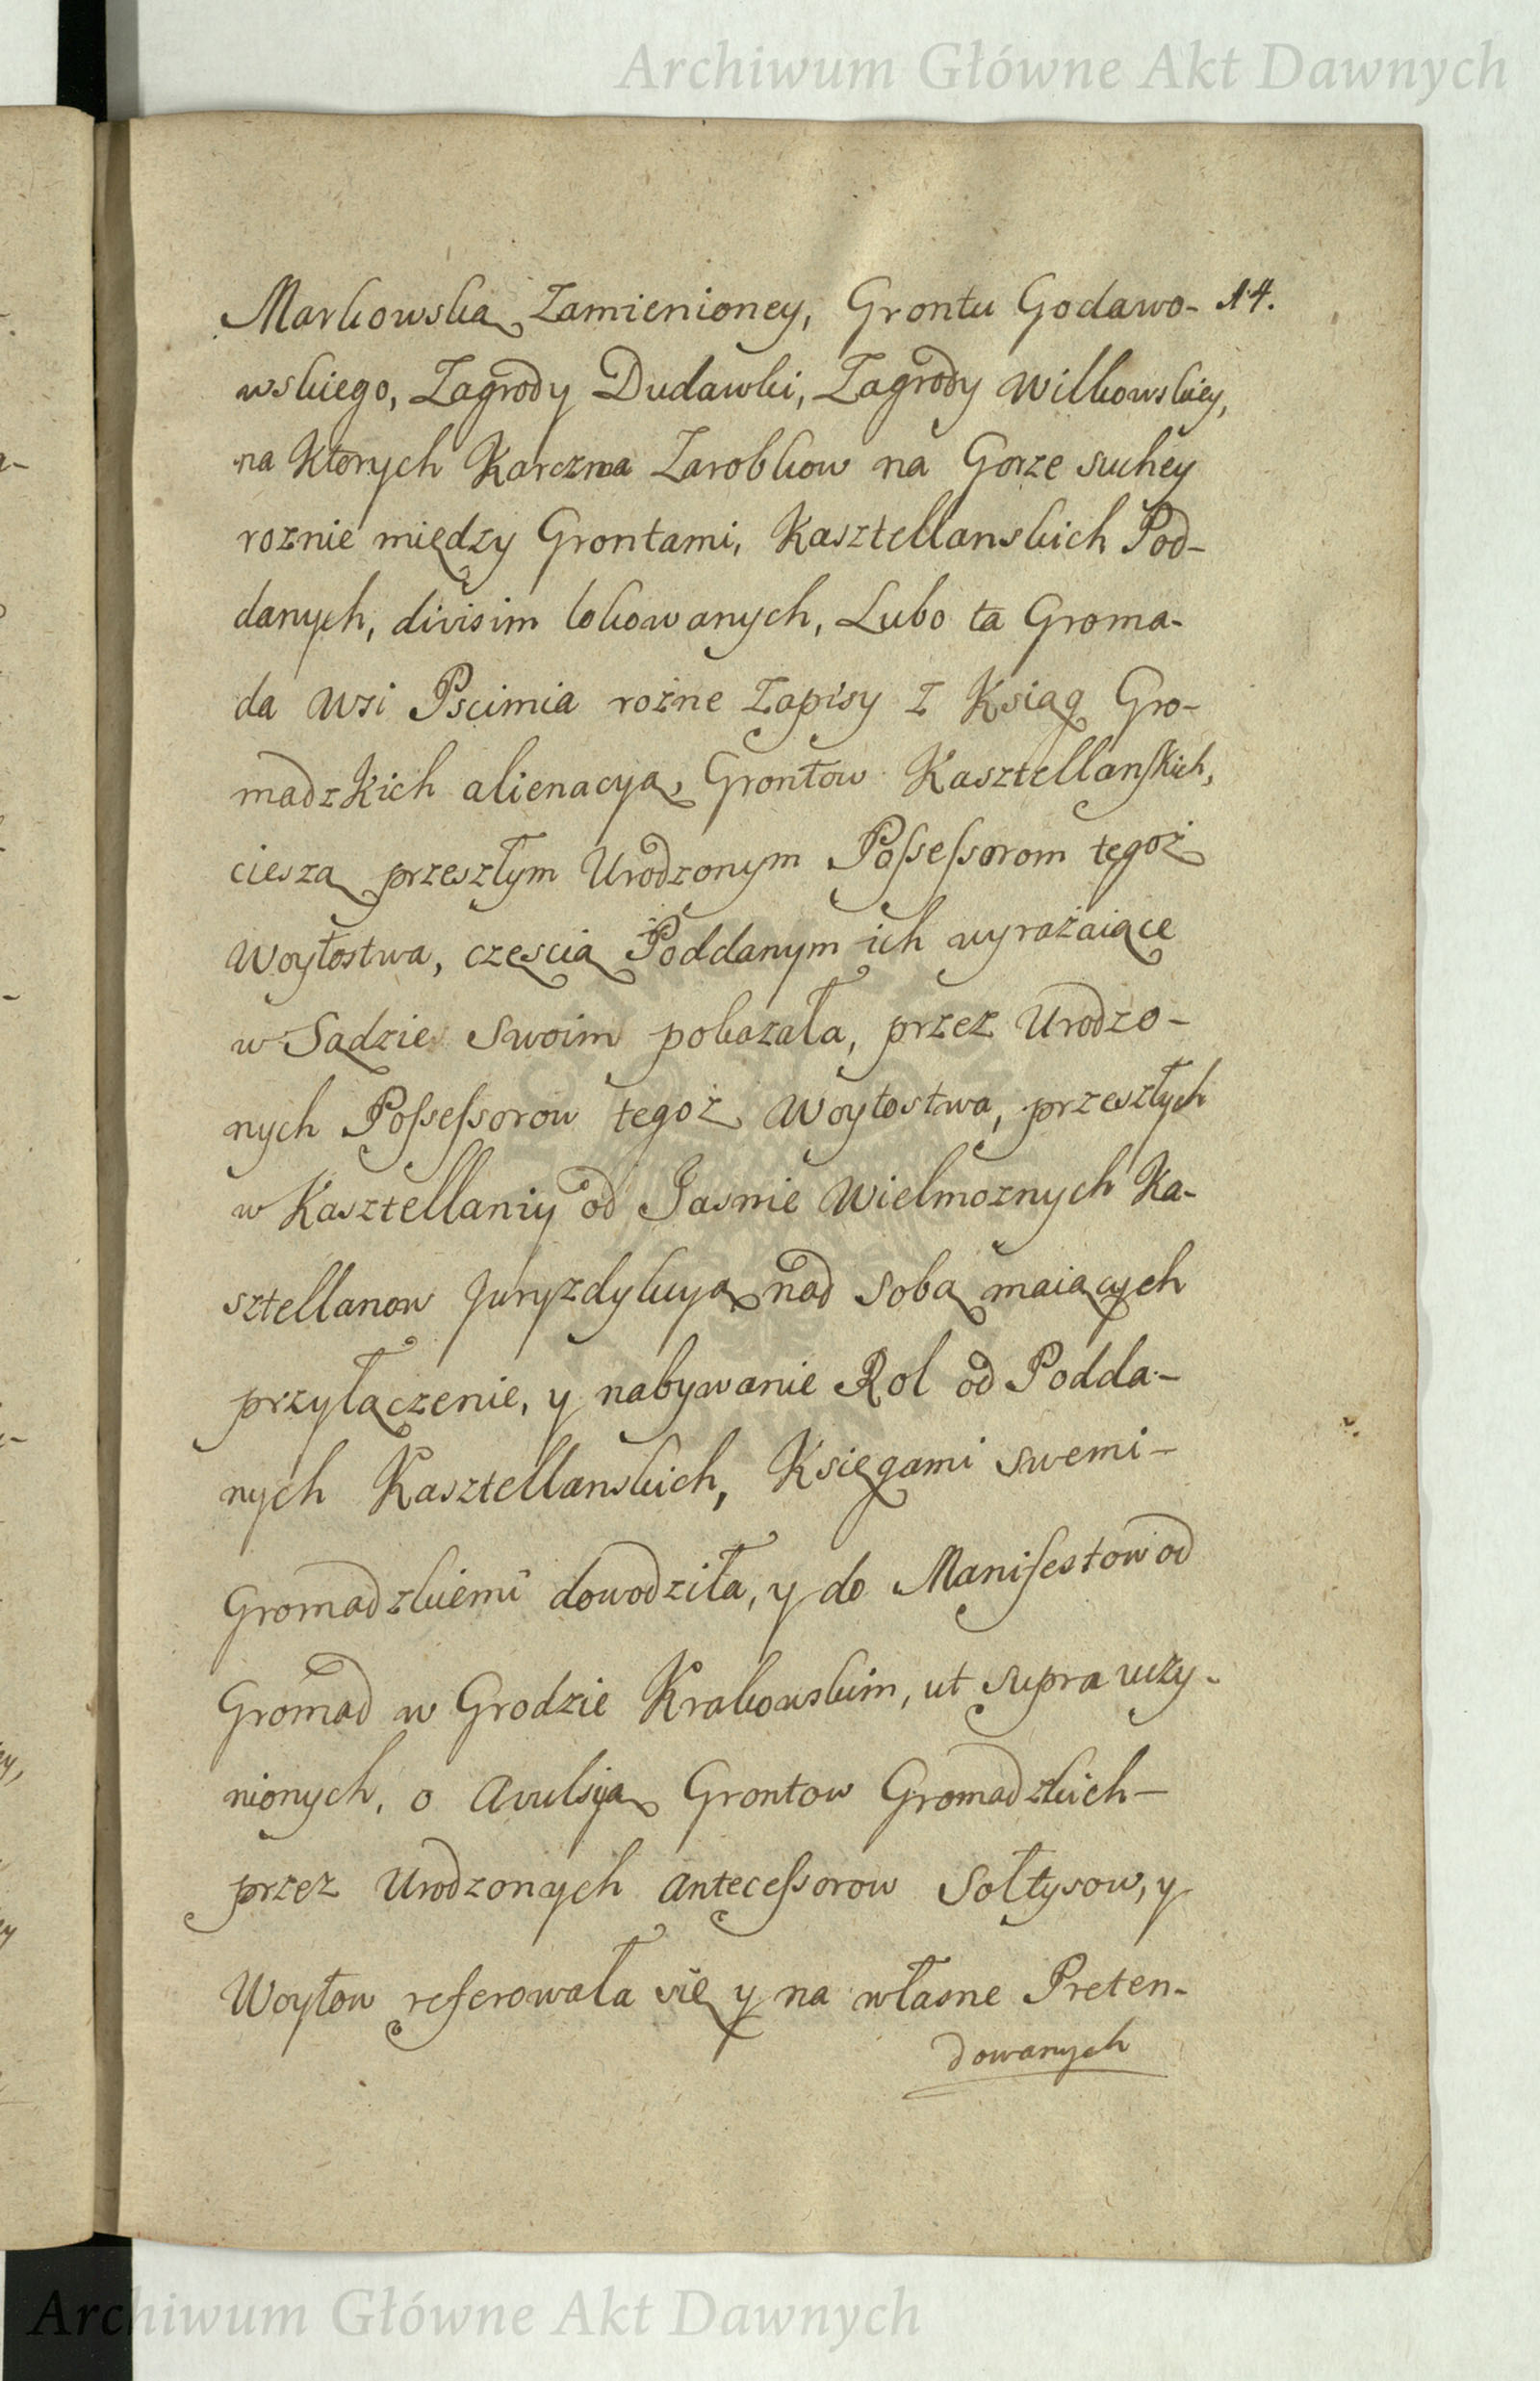 Archiwum Główne Akt Dawnych
Markowską Zamienioney, Grontu Godawo- 14.
wskiego, Zagrody Dudawki, Zagrody Wilkowskiey,
na Ktorych Karczma Zarobkow na Gorze suchey
roznie między Grontami, Kasztellanskich Pod-
danych, divisim lokowanych, Lubo ta Groma-
da Wsi Pscimia rożne Zapisy z Ksiąg Gro-
madzkich alienacyą Grontow Kasztellanskich,
ciesza przeszłym Urodzonym Possessorom tegoż
Woytostwa, częscią Poddanym ich wyrażaiące
w Sądzie Swoim pokazała, przez Urodzo-
nych Possessorow tegoż Woytostwa, przeszłych
w Kasztellaniy od Jasnie Wielmoznych Ka-
sztellanow Juryzdykcyą nad sobą maiących
przyłączenie, y nabywanie Rol od Podda-
nych Kasztellanskich, Księgami swemi-
Gromadzkiemi dowodziła, y do Manifestow od
Gromad w Grodzie Krakowskim, ut supra uczy-
nionych, o Avulsyą Grontow Gromadzkich-
przez Urodzonych Antecessorow Sołtysow, y
Woytow referowała się y na własne Preten-
dowanych
Archiwum Główne Akt Dawnych